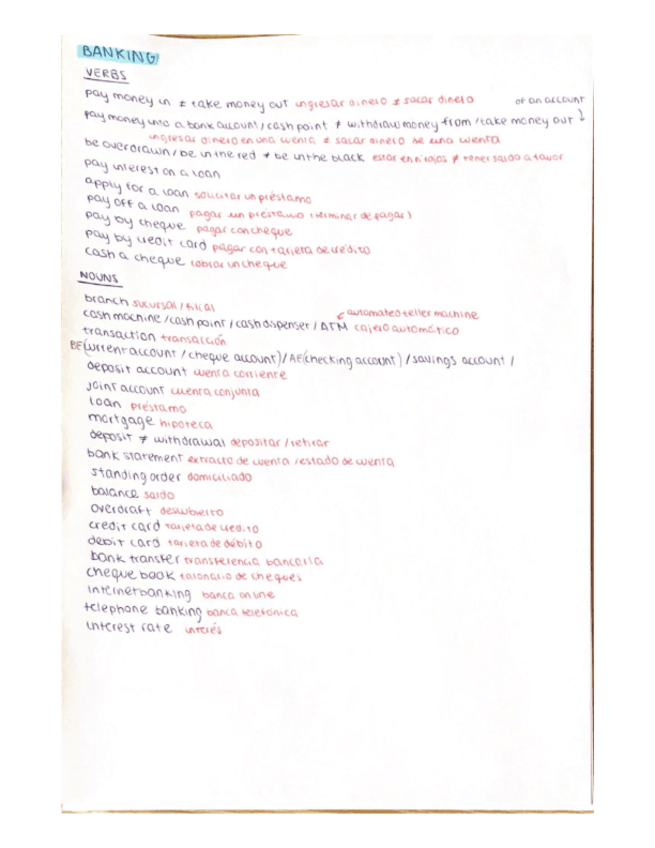 BANKING
VERBS
pay money in ≠ take money out ingresar dinero ≠ sacar dinero
of an account
pay money into a bank account / cash point ≠ withdraw money from / take money out
ingresar dinero en una cuenta ≠ sacar dinero de una cuenta
be overdrawn / be in the red ≠ be in the black estar en rojos ≠ tener saldo a favor
pay interest on a loan
apply for a loan solicitar un préstamo
pay off a loan pagar un préstamo (terminar de pagar)
pay by cheque pagar con cheque
pay by credit card pagar con tarjeta de crédito
cash a cheque cobrar un cheque
NOUNS
branch sucursal / filial
automated teller machine
cash machine / cash point / cash dispenser / ATM cajero automático
transaction transacción
BE (current account / cheque account) / AE (checking account) / savings account /
deposit account cuenta corriente
joint account cuenta conjunta
loan préstamo
mortgage hipoteca
deposit ≠ withdrawal depositar / retirar
bank statement extracto de cuenta / estado de cuenta
standing order domiciliado
balance saldo
overdraft descubierto
credit card tarjeta de crédito
debit card tarjeta de débito
bank transfer transferencia bancaria
cheque book talonario de cheques
internet banking banca online
telephone banking banca telefónica
interest rate interés